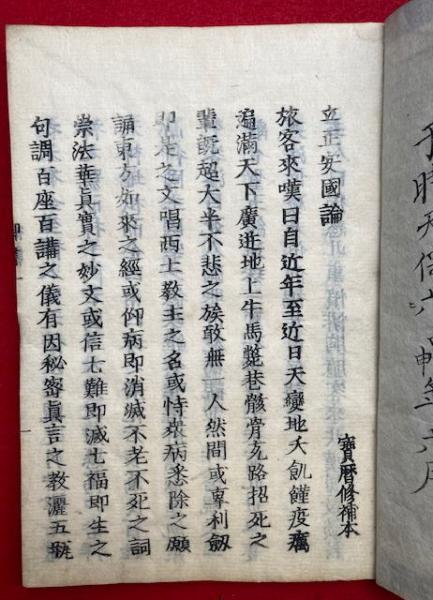 于時天保六年六月
立正安國論
寶暦修補本
旅客來嘆曰自近年至近日天變地夭飢饉疫癘
遍滿天下廣迸地上牛馬斃巷骸骨充路招死之
輩既超大半不悲之族敢無一人然間或專利劔
即是之文唱西土教主之名或恃衆病悉除之願
誦東方如來之經或仰病即消滅不老不死之詞
崇法華真實之妙文或信七難即滅七福即生之
句調百座百講之儀有因秘密真言之教灑五瓶